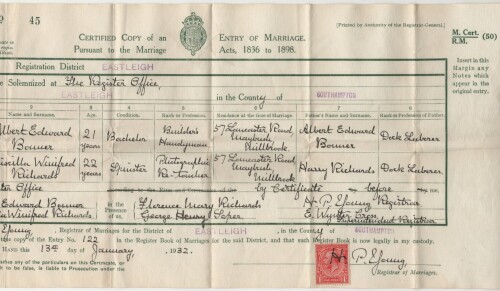 45
[Printed by Authority of the Registrar-General.]
CERTIFIED COPY of an ENTRY OF MARRIAGE.
Pursuant to the Marriage Acts, 1836 to 1898.
M. Cert. (50)
R.M.
Registration District EASTLEIGH
Insert in this
Margin any
Notes which
appear in the
original entry.
Solemnized at The Register Office,
EASTLEIGH in the County of SOUTHAMPTON
3 4 5 6 7 8
Name and Surname. Age. Condition. Rank or Profession. Residence at the time of Marriage. Father's Name and Surname. Rank or Profession of Father.
Albert Edward Bonner 21 years Bachelor Builder's Handyman 57 Loncaster Road, Maybush, Millbrook. Albert Edward Bonner Dock Laborer
Winifred Richards 22 years Spinster Photographic Re-toucher 57 Loncaster Road, Maybush, Millbrook Harry Richards Dock Laborer
Office according to the Rites and Ceremonies of the by Certificate before me,
Edward Bonner in the Florence Mary Richards H. P. Young Registrar
Winifred Richards Presence of us, George Henry Soper E. Superintendent Registrar
Young, Registrar of Marriages for the District of EASTLEIGH, in the County of SOUTHAMPTON
copy of the Entry No. 122 in the Register Book of Marriages for the said District, and that such Register Book is now legally in my custody.
HAND this 13th day of January, 1932. H. P. Young,
Registrar of Marriages.
any of the particulars on this Certificate, or
it to be false, is liable to Prosecution under the